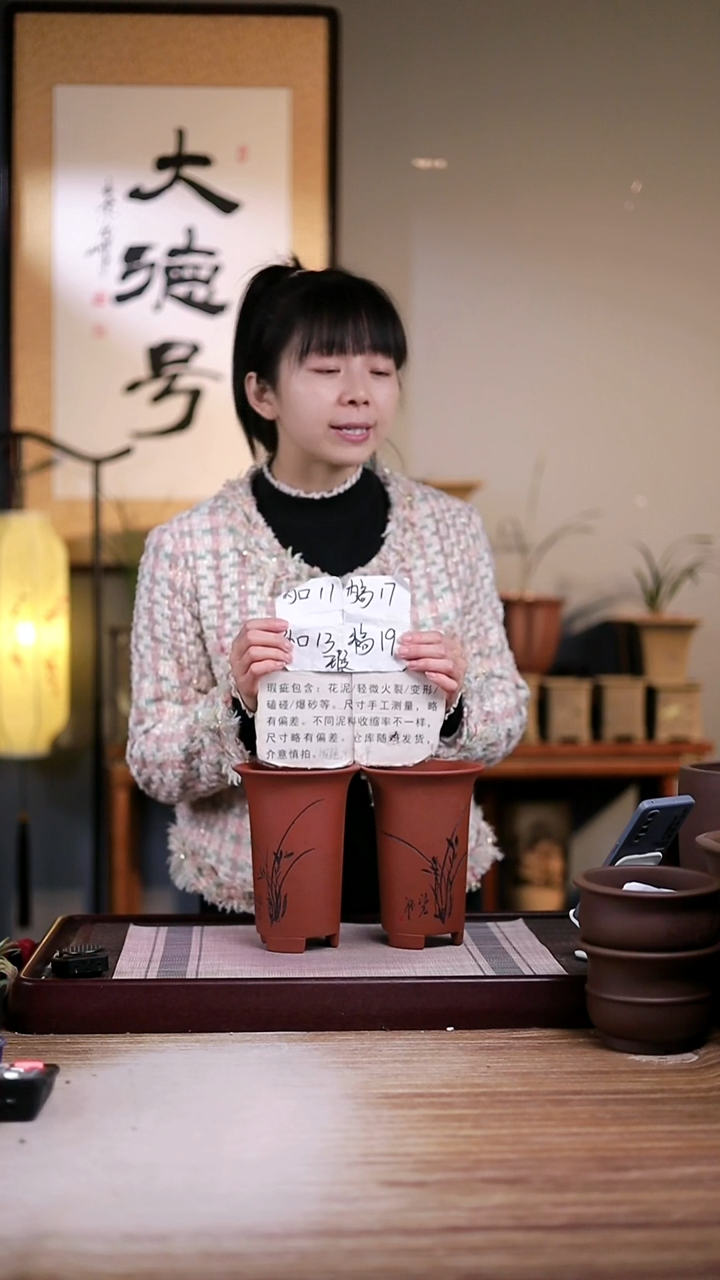 大
德
号
口11 高17
口13 高19
瑕
瑕疵包含：花泥/轻微火裂/变形/
磕碰/爆砂等。尺寸手工测量，略
有偏差。不同泥料收缩率不一样，
尺寸略有偏差。仓库随机发货，
介意慎拍。